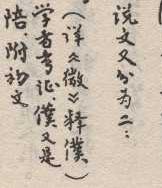 说文又分为二：
（详《微》释僕）
学者考证，僕又是
陪、附初文